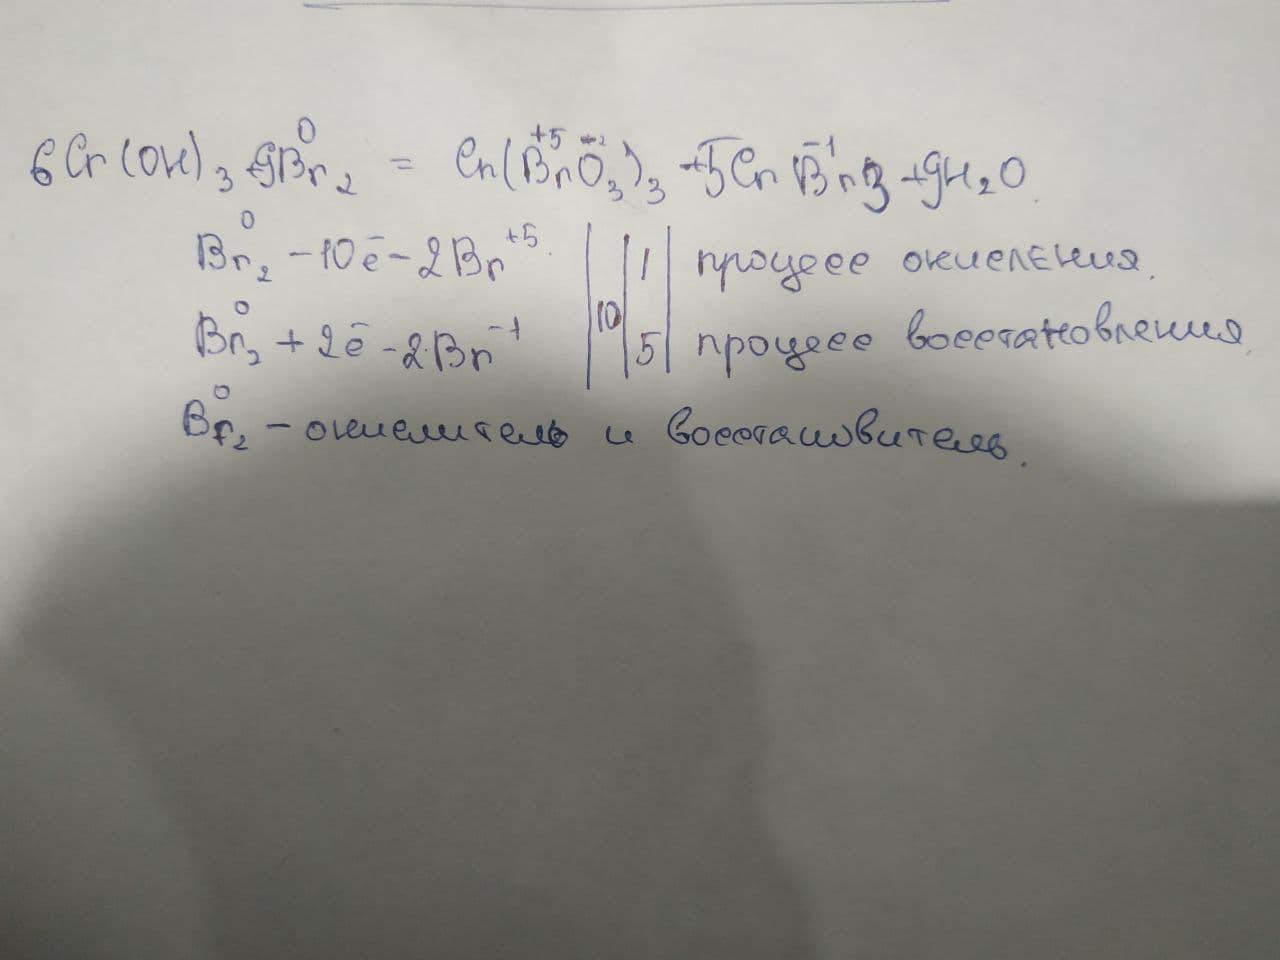 6Cr(OH)₃ + 9Br₂⁰ = Cr(Br⁺⁵O⁻²₃)₃ + 5CrBr⁻¹₃ + 9H₂O
Br₂⁰ - 10ē - 2Br⁺⁵ | | 1 | процесс окисления.
Br₂⁰ + 2ē - 2Br⁻¹ | 10 | 5 | процесс восстановления.
Br₂⁰ - окислитель и восстановитель.